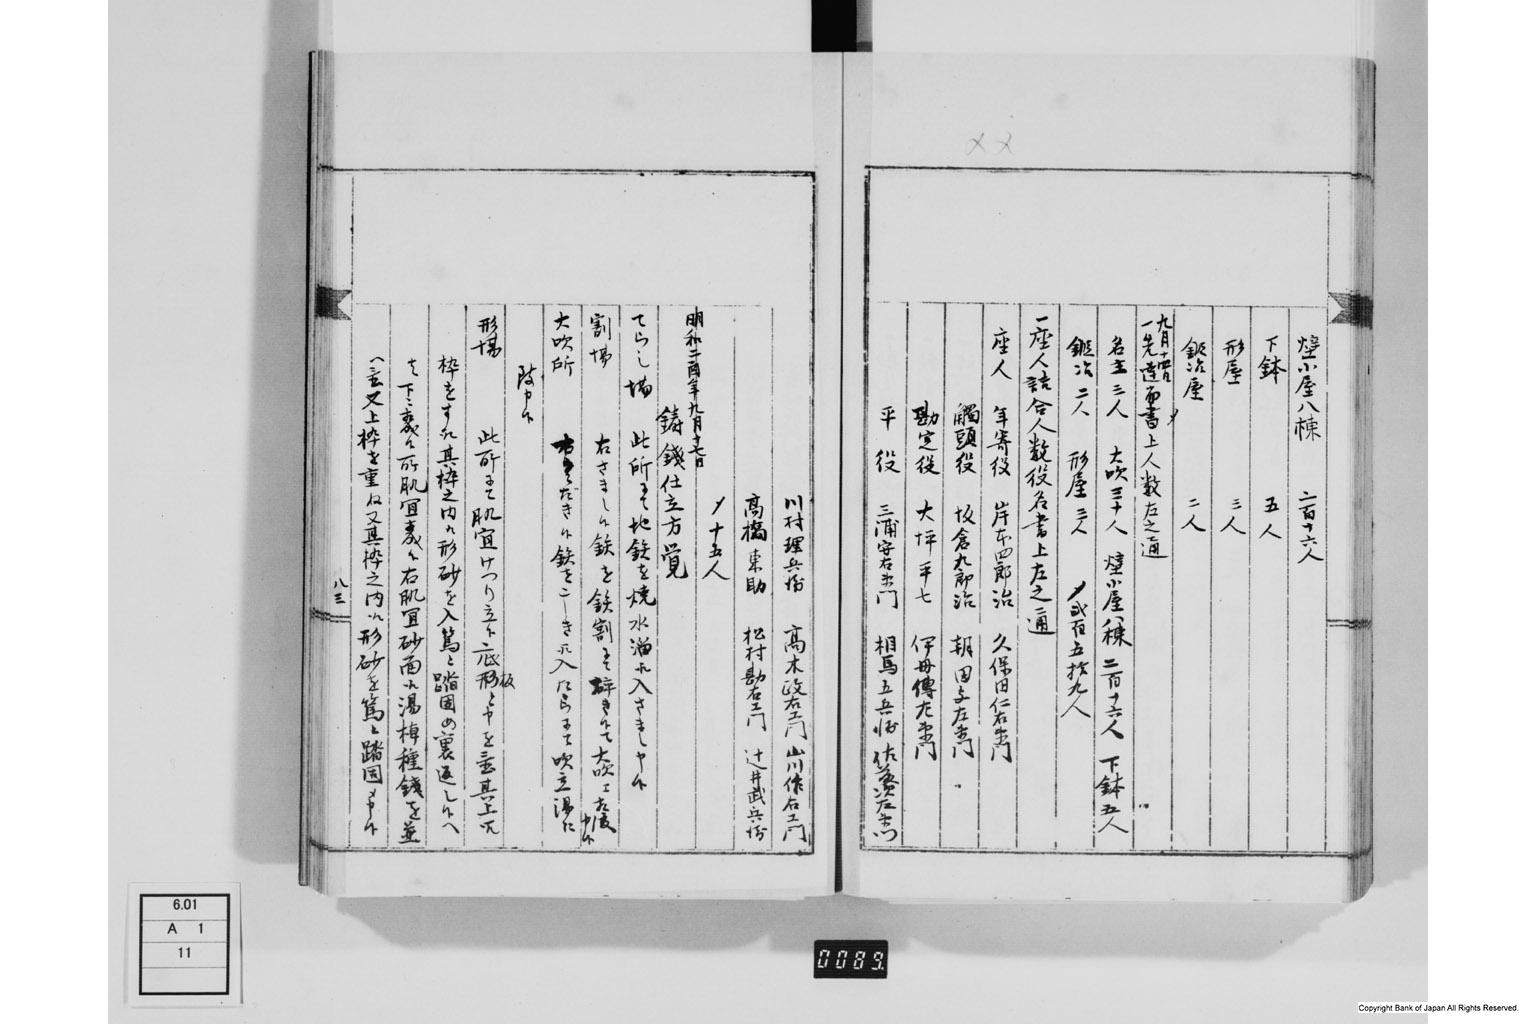 ××
壁小屋八棟 二百十六人
下鉢 五人
形屋 三人
鍛冶屋 二人
九月十四日
一先達而書上人数左之通
名主 三人 大吹三十人 壁小屋八棟 二百十六人 下鉢五人
鍛冶 二人 形屋 三人 〆弐百五拾九人
一座人詰合人数役名書上左之通
座人 年寄役 岸本四郎治 久保田仁右衛門
觸頭役 坂倉九郎治 朝田与左衛門
勘定役 大坪平七 伊丹傳左衛門
平役 三浦安右衛門 相馬五兵衛
川村理兵衛 高木政右エ門 山川作右エ門
高橋東助 松村勘右エ門 辻井武兵衛
〆十五人
明和二酉年九月十七日
鋳錢仕立方覚
てらし場 此所にて地鉄を焼水溜に入さまし申候
割場 右さまし候鉄を鉄割にて
大吹所
形場 此所にて肌宜けつり立候底形板と申を置其上に
枠をすへ其枠之内に形砂を入篤と踏固め裏返し候へ
右肌宜砂面に湯棹種錢を並
又上枠を重ね又其枠之内に形砂を篤と踏固メ申候
八三
6.01
A 1
11
0089.
Copyright Bank of Japan All Rights Reserved.